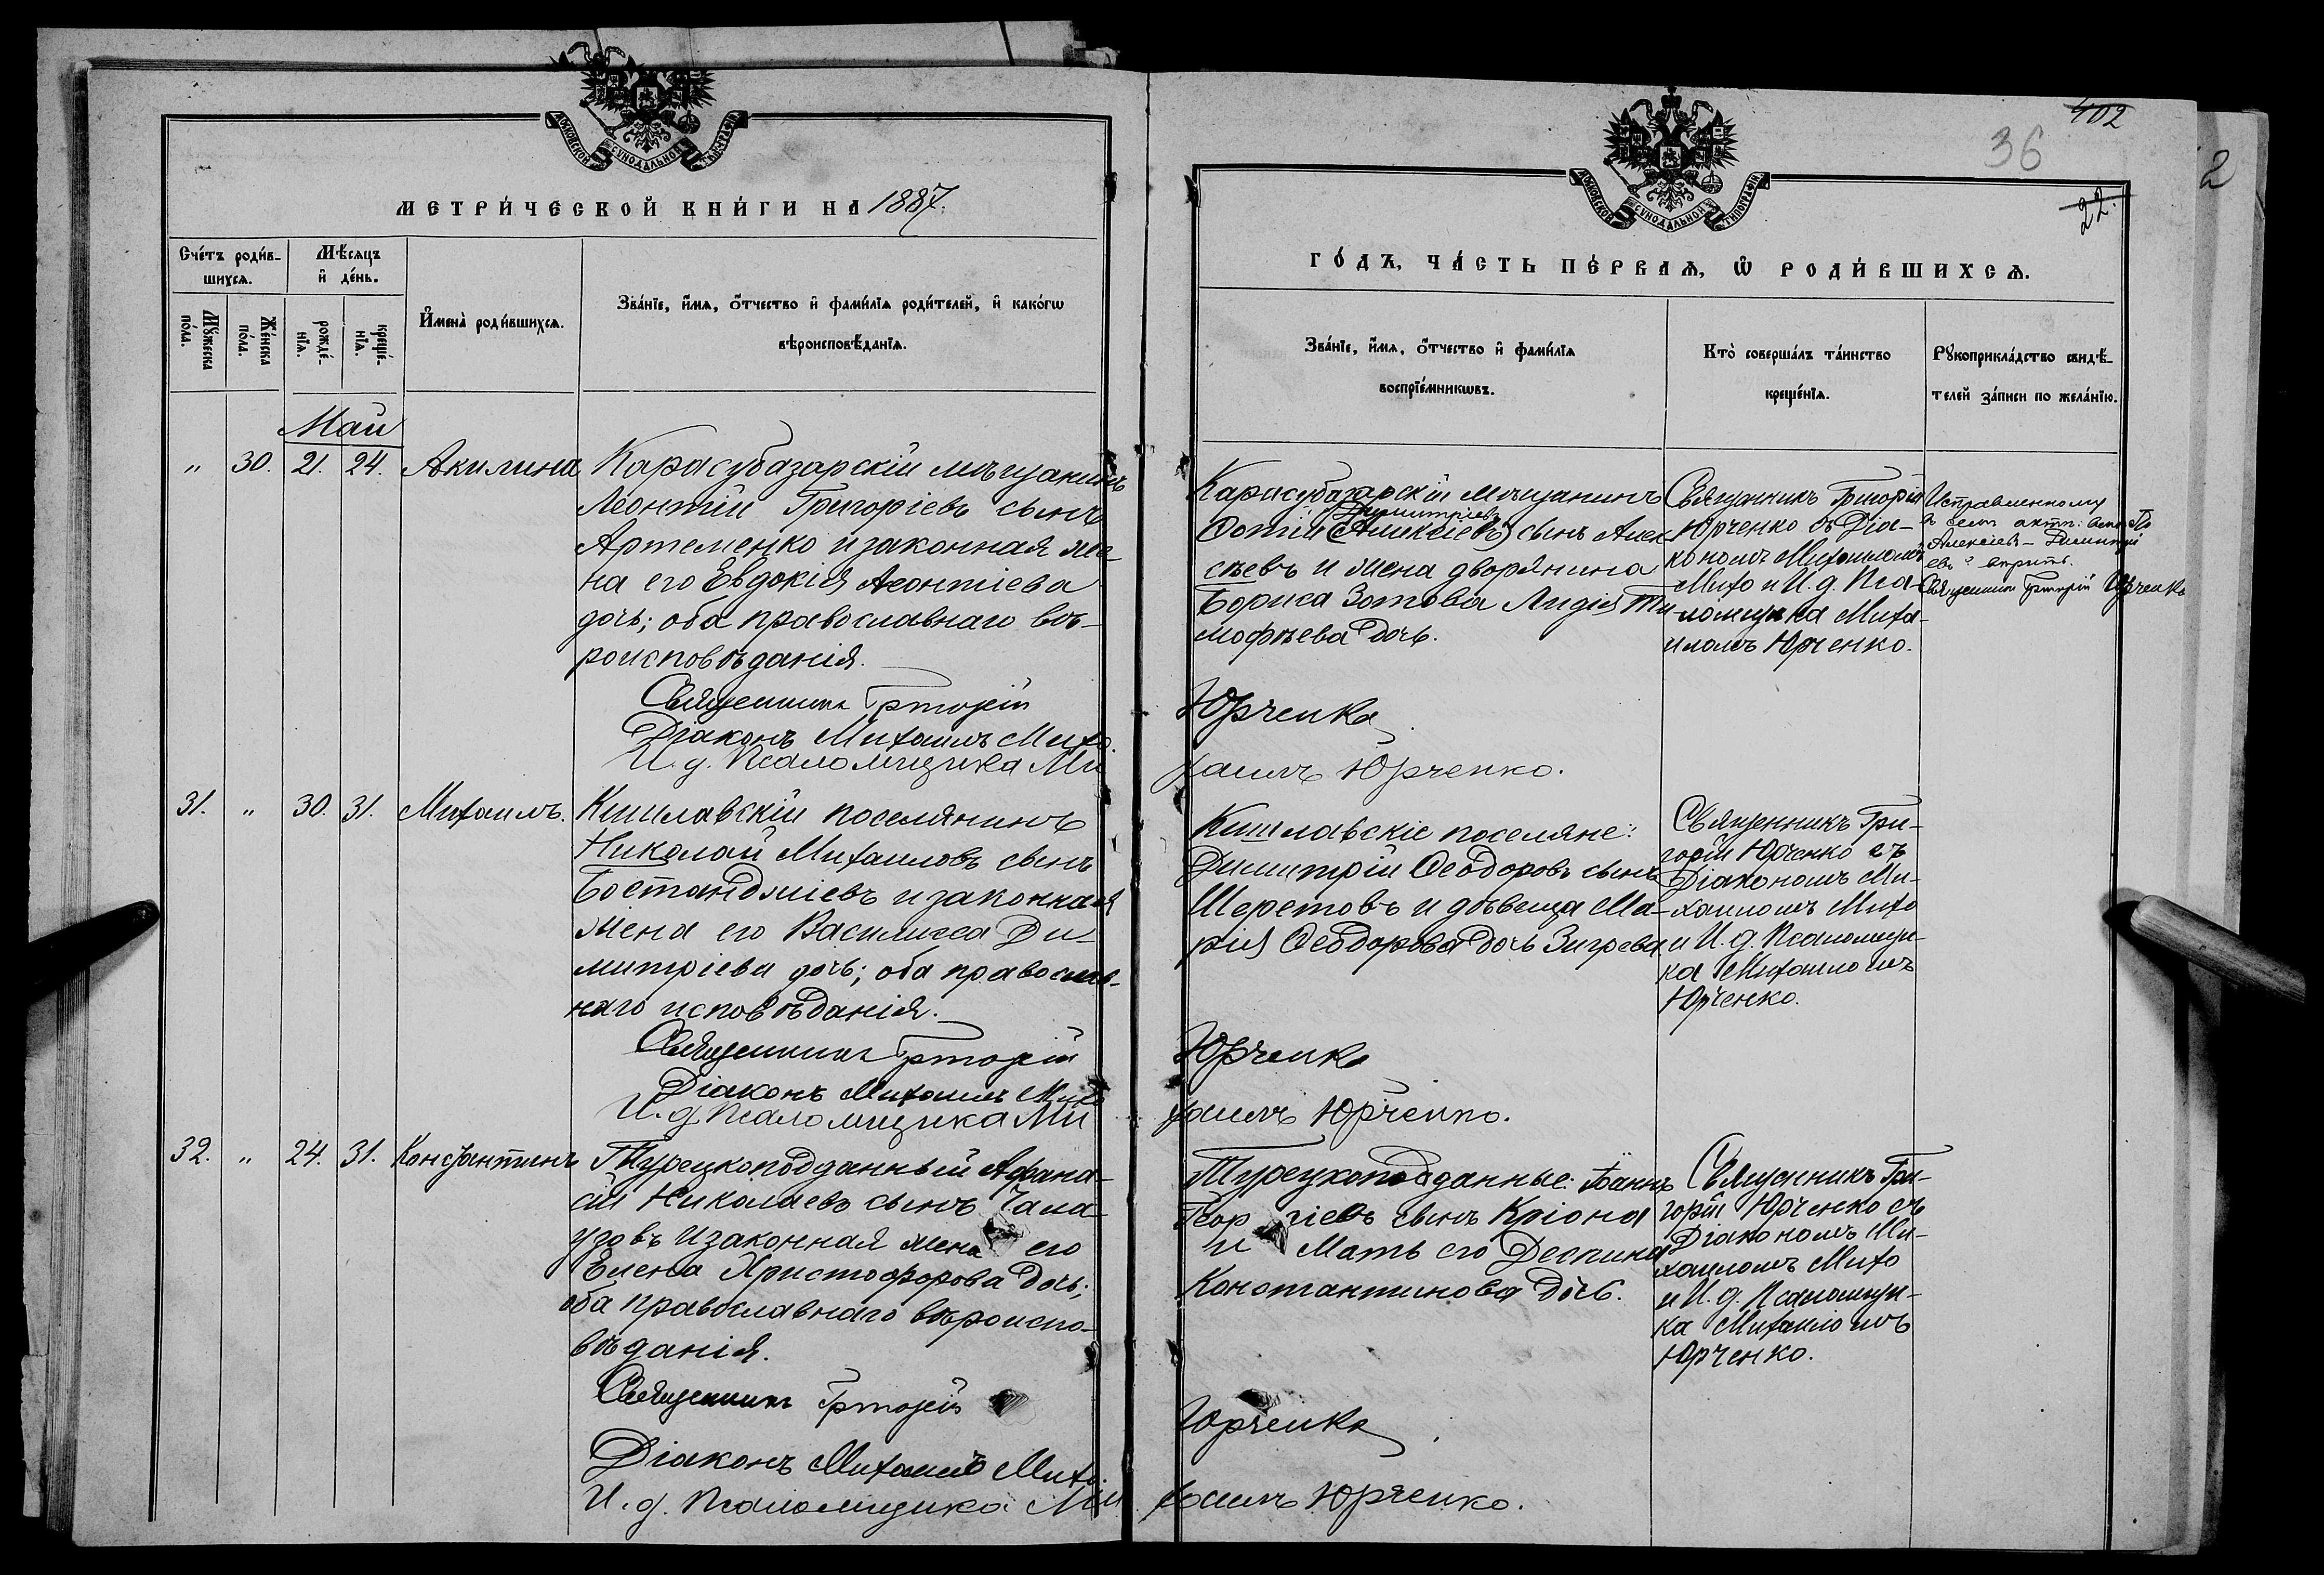 МОСКОВСКОЙ СУНОДАЛЬНОЙ ТИПОГРАФІИ
МЕТРИ́ЧЕСКОЙ КНИ́ГИ НА 1887.
Сче́тъ роди́в-
шихсѧ.
Мѣ́сѧцъ
и҆ де́нь.
Мꙋ́жеска
по́ла.
Же́нска
по́ла.
рожде́-
нїѧ.
креще́-
нїѧ.
И҆мена̀ роди́вшихсѧ.
Зва́нїе, и҆́мѧ, ѻ҆́тчество и҆ фами́лїѧ роди́телей, и҆ како́гѡ
вѣроисповѣ́данїѧ.
Май
„ 30. 21. 24. Акилина
Карасубазарскій мѣщанинъ
Леонтій Григоріевъ сынъ
Артеменко и законная же-
на его Евдокія Леонтіева
дочь; оба православнаго вѣ-
роисповѣданія.
Священникъ Григорій
Діаконъ Михаилъ Михо
И. д. Псаломщика Ми
31. „ 30. 31. Михаилъ.
Кишлавскій поселянинъ
Николай Михаиловъ сынъ
Бостанджіевъ и законная
жена его Василисса Ди-
митріева дочь; оба православ-
наго исповѣданія.
Священникъ Григорій
Діаконъ Михаилъ Михо
И. д. Псаломщика Ми
32. „ 24. 31. Константинъ
Турецкоподданный Афана-
сій Николаевъ сынъ
и законная жена его
Елена Христофорова дочь;
оба православнаго вѣроиспо-
вѣданія.
Священникъ Григорій
Діаконъ Михаилъ Михо
И. д. Псаломщика Ми
402
36
22.
2
МОСКОВСКОЙ СУНОДАЛЬНОЙ ТИПОГРАФІИ
ГО́ДЪ, ЧА́СТЬ ПЕ́РВАѦ, Ѡ҆ РОДИ́ВШИХСѦ.
Зва́нїе, и҆́мѧ, ѻ҆́тчество и҆ фами́лїѧ
воспрїе́мникѡвъ.
Кто̀ соверша́лъ та́инство
креще́нїѧ.
Рꙋкоприкла́дство свидѣ́-
телей за́писи по жела́нїю.
Карасубазарскій мѣщанинъ
Димитріевъ
Фотій (Алексіевъ) сынъ Алек-
сѣевъ и жена дворянина
Бориса Зотова Лидія Ти-
мофѣева дочь.
Священникъ Григорій
Юрченко съ Діа-
кономъ Михаиломъ
Михо и И. д. Пса-
ломщика Миха-
иломъ Юрченко.
Исправленному
въ семъ актѣ:
Алексіевъ – Димитрі
евъ вѣрить.
Священникъ Григорій Юрченко
Юрченко
хаилъ Юрченко.
Кишлавскіе поселяне:
Димитрій Ѳеодоровъ сынъ
Шеретовъ и дѣвица Ма-
рія Ѳеодорова дочь Зигрева.
Священникъ Гри-
горій Юрченко съ
Діакономъ Ми-
хаиломъ Михо
и И. д. Псаломщи-
ка Михаиломъ
Юрченко.
Юрченко
хаилъ Юрченко.
Турецкоподданные: Іоаннъ
Георгіевъ сынъ Кріона
и Мать его Деспина
Константинова дочь.
Священникъ Гри-
горій Юрченко съ
Діакономъ Ми-
хаиломъ Михо
и И. д. Псаломщи-
ка Михаиломъ
Юрченко.
Юрченко
хаилъ Юрченко.